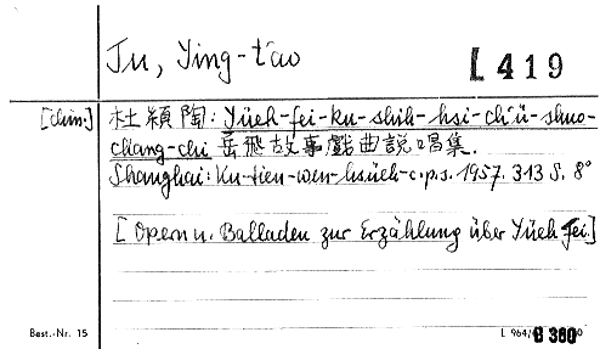 Tu, Ying-t'ao
L 419
[chin.] 杜穎陶: Yüeh-fei-ku-shih-hsi-ch'ü-shuo-
chang-chi 岳飛故事戲曲説唱集.
Shanghai: Ku-tien-wen-hsüeh-c.p.s. 1957. 313 S. 8°
[Opern u. Balladen zur Erzählung über Yüeh Fei.]
Best.-Nr. 15
L 964/ B 360